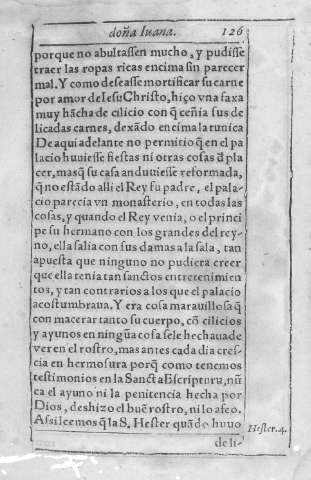 doña Iuana. 126
porque no abultassen mucho, y pudisse
traer las ropas ricas encima sin parecer
mal. Y como deseasse mortificar su carne
por amor de Iesu Christo, hiço vna faxa
muy hãcha de cilicio con q̃ ceñia sus de
licadas carnes, dexãdo encima la tunica
De aqui adelante no permitio q̃ en el pa
lacio huuiesse fiestas ni otras cosas đ pla
cer, mas q̃ su casa anduuiesse reformada,
q̃ no estãdo alli el Rey fu padre, el pala-
cio parecia vn monasterio, en todas las
cosas, y quando el Rey venia, o el princi
pe su hermano con los grandes del rey-
no, ella salia con sus damas a la sala, tan
apuesta que ninguno no pudiera creer
que ella tenia tan sanctos entretenimien
tos, y tan contrarios a los que el palacio
acostumbraua. Y era cosa marauillosa q̃
con macerar tanto su cuerpo, cõ cilicios
y ayunos en ningũa cosa se le hechaua de
ver en el rostro, mas antes cada dia cres-
cia en hermosura porq̃ como tenemos
testimonios en la Sancta Escriptura, nũ
ca el ayuno ni la penitencia hecha por
Dios, deshizo el buẽ rostro, ni lo afeo.
Assi leemos q̃ la S. Hester quãdo huuo
Hester. 4.
de li-